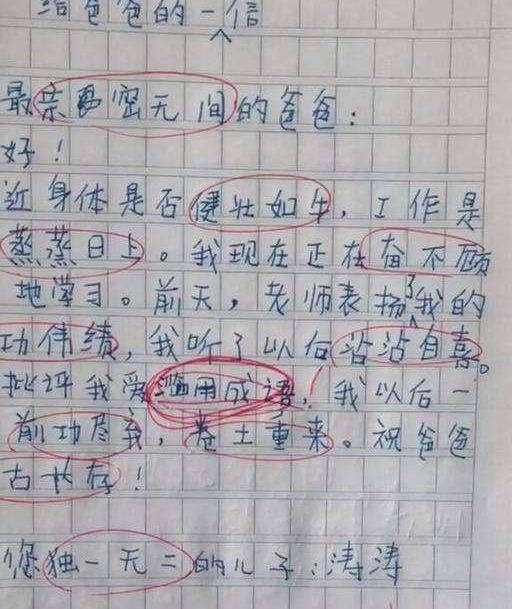 给爸爸的一信
最亲密无间的爸爸：
好！
近身体是否健壮如牛，工作是
蒸蒸日上。我现在正在奋不顾
地学习。前天，老师表扬了我的
功伟绩，我听了以后沾沾自喜。
批评我爱滥用成语，我以后一
前功尽弃，卷土重来。祝爸爸
古长存！
您独一无二的儿子：涛涛